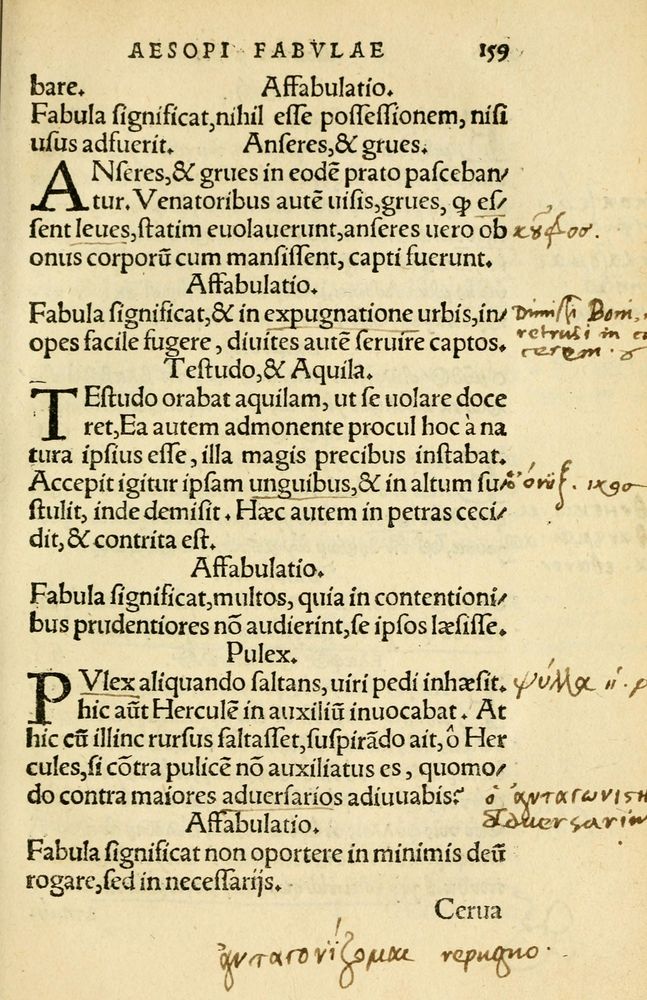 AESOPI FABVLAE 159
bare. Affabulatio.
Fabula significat,nihil esse possessionem, nisi
usus adfuerit. Anseres,& grues.
ANseres,& grues in eodē prato pasceban/
tur. Venatoribus autē uisis,grues, ꝙ es/
sent leues,statim euolauerunt,anseres uero ob κȣ͂φοσ.
onus corporū cum mansissent, capti fuerunt.
Affabulatio.
Fabula significat,& in expugnatione urbis,in/ Dimissi Boni,
opes facile fugere, diuites autē seruire captos. retrusi in
Testudo,& Aquila. cerem.
TEstudo orabat aquilam, ut se uolare doce
ret,Ea autem admonente procul hoc à na
tura ipsius esse, illa magis precibus instabat.
Accepit igitur ipsam unguibus,& in altum su/
stulit, inde demisit. Hæc autem in petras ceci/
dit,& contrita est.
Affabulatio.
Fabula significat,multos, quia in contentioni/
bus prudentiores nō audierint,se ipsos læsisse.
Pulex.
PVlex aliquando saltans, uiri pedi inhæsit. ψύλλα
hic aūt Herculē in auxiliū inuocabat. At
hic cū illinc rursus saltasset,suspirādo ait, ô Her
cules,si cōtra pulicē nō auxiliatus es, quomo/
do contra maiores aduersarios adiuuabis? ὁ ἀνταγωνιστη
Affabulatio. aduersariu
Fabula significat non oportere in minimis deū
rogare,sed in necessarijs.
Cerua
ἀνταγονίζομαι repugno.